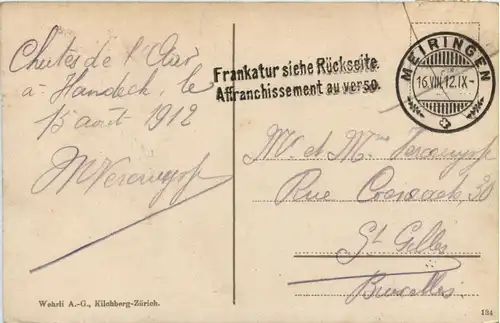 Chutes de l'Aar
à Handeck, le
15 août 1912
Frankatur siehe Rückseite.
Affranchissement au verso.
MEIRINGEN
16.VIII.12.IX-
M. et Mme
Rue 30
St Gilles
Bruxelles.
Wehrli A.-G., Kilchberg-Zürich.
134